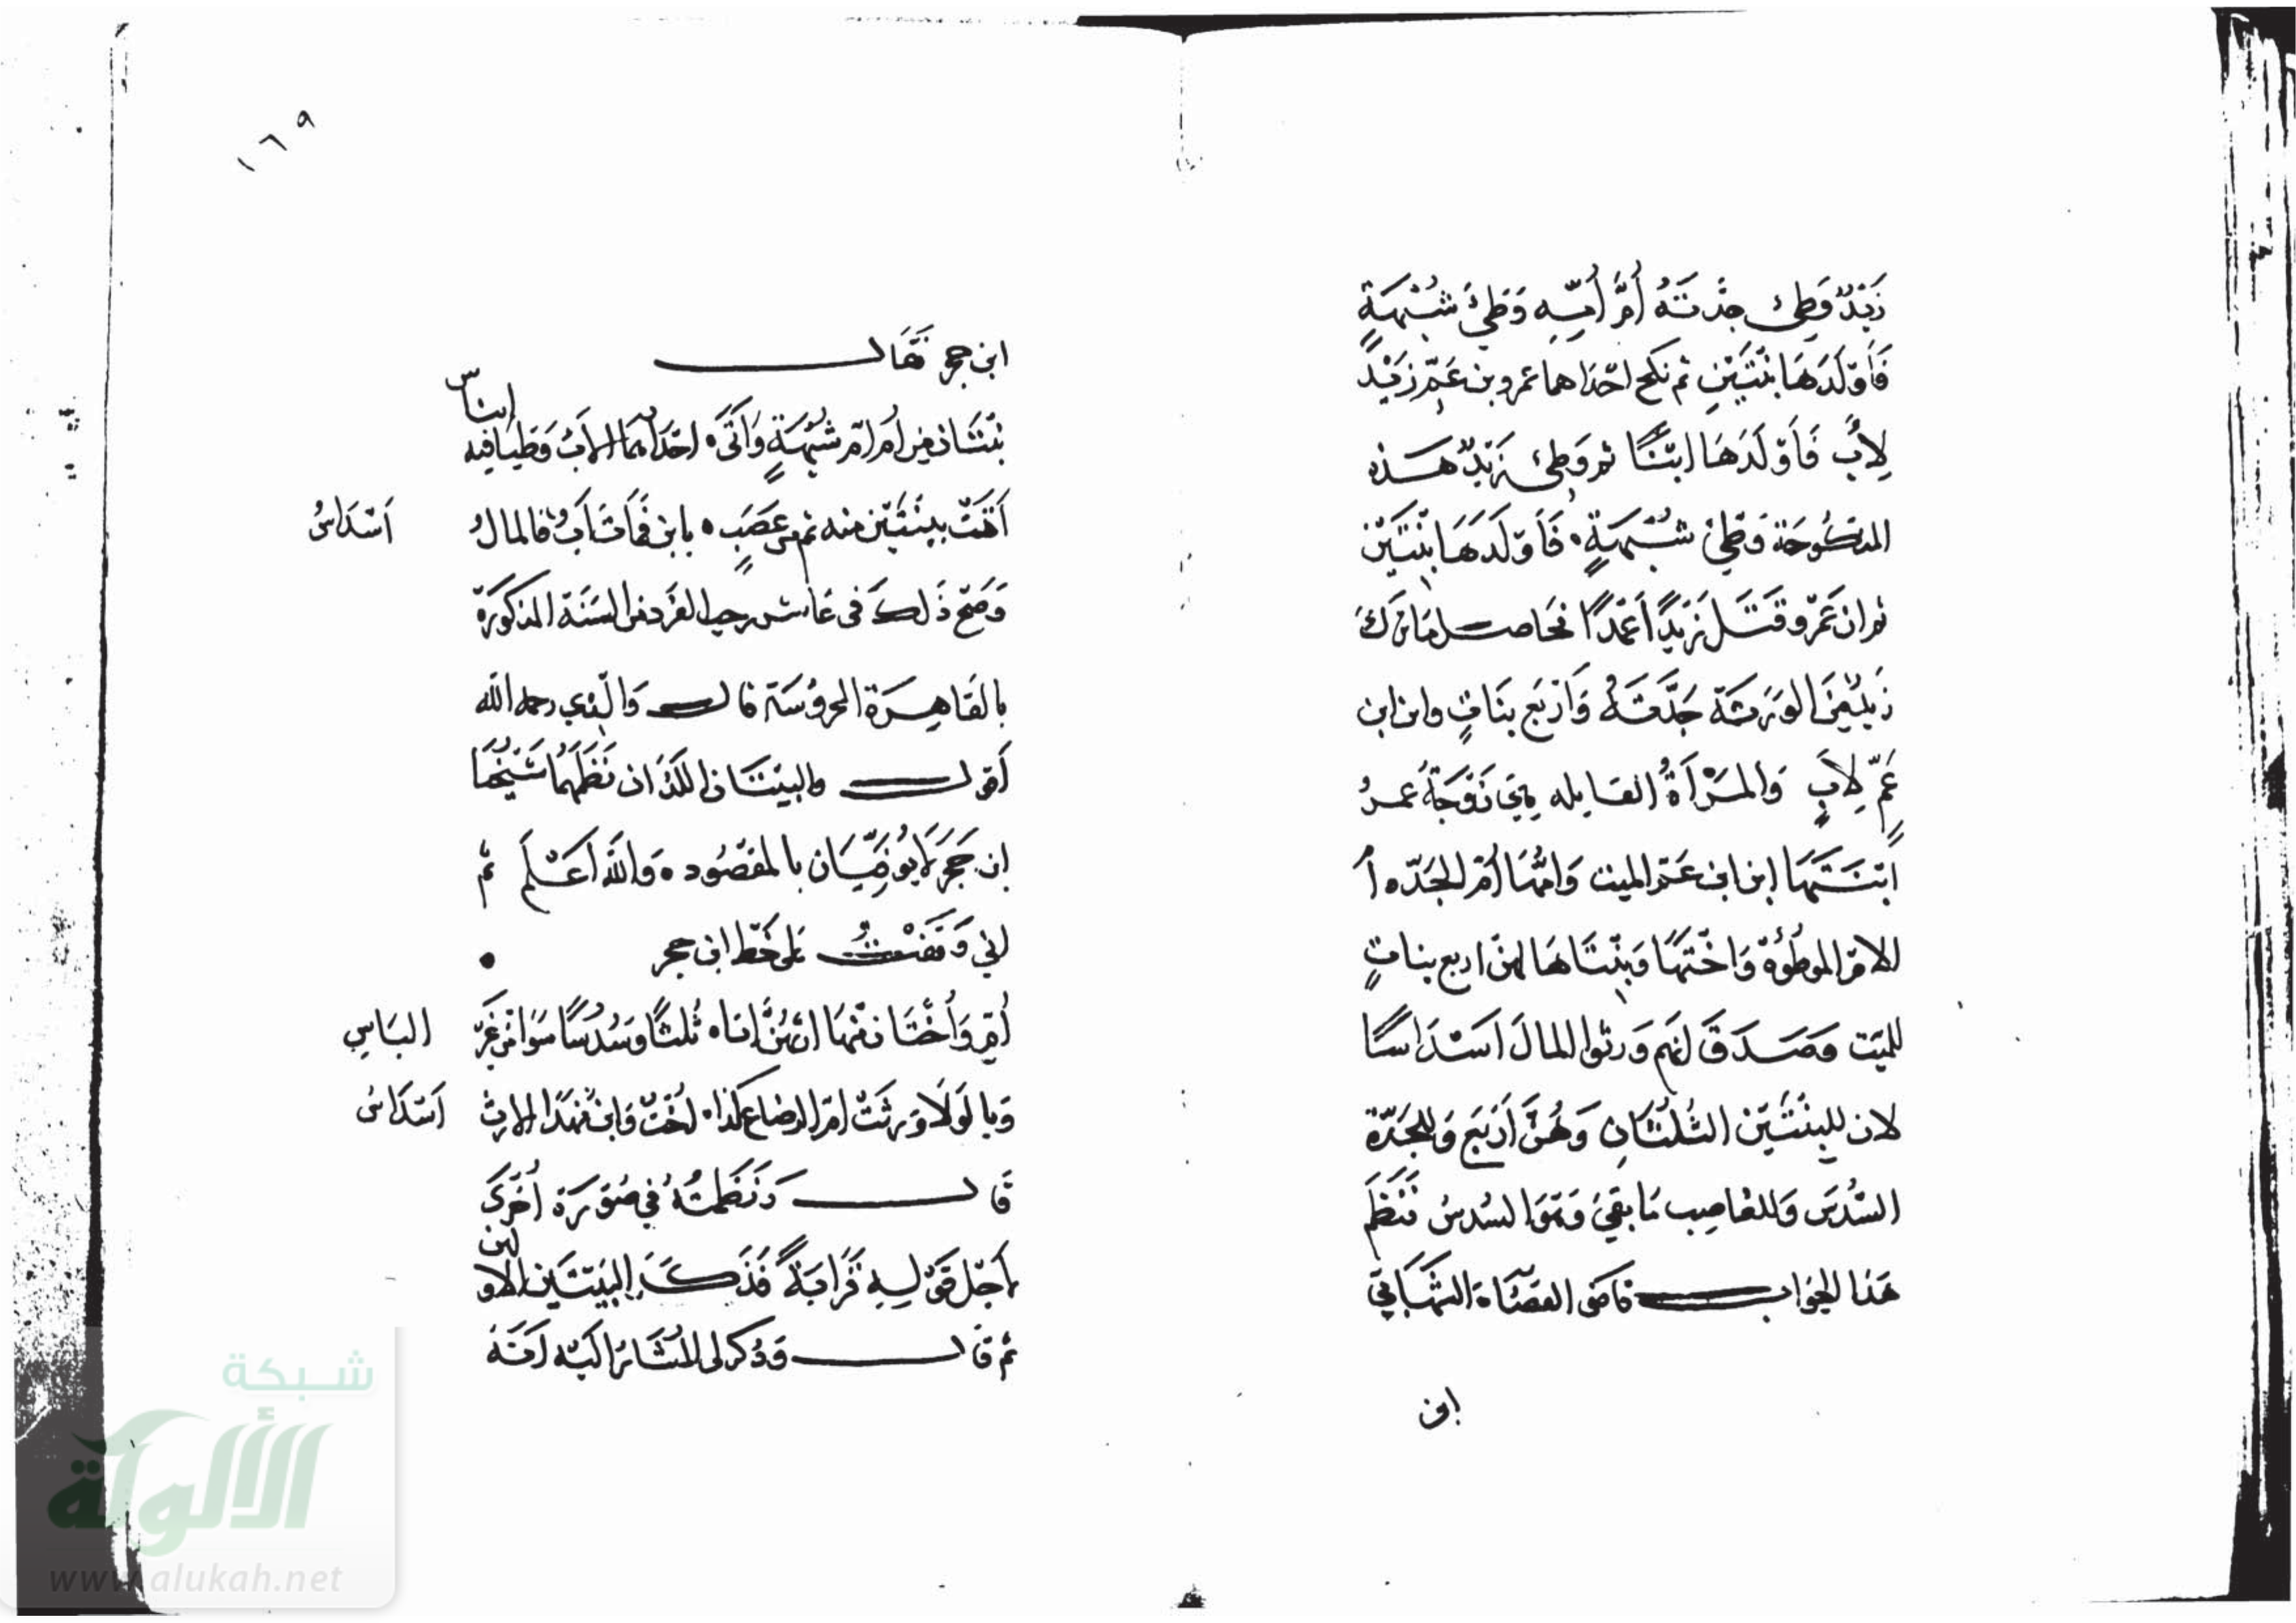 زَيْدٌ وَطِئ جدَّتَهُ أُمَّ أُمِّهِ وَطْئَ شُبْهَةٍ
فَأَوْلَدَهَا بِنْتَيْنِ ثم نكح احْدَاهما عمرو بن عَمِّ زَيْدٍ
لِأَبٍ فَأَوْلَدَهَا ابْنًا ثم وَطِئ زَيْدٌ هَذِه
المَنكُوحَة وَطْئَ شُبْهَةٍ فَأَوْلَدَهَا بِنْتَيْن
ثم ان عَمْرو قَتَلَ زَيْدًا عَمْدًا فحاصل مَا تَرَكَ
زَيد مِنَ الوَرَثَة جَدَّتَهُ وَأَرْبَع بنَاتٍ وابن ابن
عَمّ لِأَبٍ وَالمَرْأَةُ القايله هِيَ زَوْجَةُ عمرو
ابْنَتَهَا ابن ابن عَم الميت وَامُّهَا أُمّ الجَدّه أم
للامّ الموطُوءَة وَاخْتهَا وَبِنْتَاهَا لهنّ اربع بناتٍ
للميّت وَصَدَقَ انهم وَرِثوا المالَ اسْدَاسًا
لان للبِنْتَيْن الثُلُثَانِ وَهُنَّ أَرْبَع وَلِلجَدّة
السُّدُسَ وَللعَاصِب مَا بقيَ وَهوَ السُدسُ فَنَظَمَ
هَذا الجوَاب قاضى القضَاة الشهَابيّ
ابن
١٦٩
ابن حجر فَقَال
بنْتَان مِن أُم امّ شُبْهَةٍ وَأَتَى احْدَاهُمَا الابُ وَطيًا فيه إيناس
أَتَتْ ببِنْتَيْن منه ثم مِن عَصَبٍ بابن فَمَاتَ أَبٌ فالمالُ أَسْدَاسُ
وَصَحّ ذَلكَ فى عَاشر رجب الفَرد من السَنَة المذكورَة
بالقَاهِرَة المحرُوسَة قال وَالدي رحمه الله
أَقول والبيْتَان اللذَان نَظَمَهُمَا شَيْخُنَا
ابن حَجَر لَا يُوفيَّان بالمقصُود وَالله أَعْلَم ثم
اني وَقَفْتُ على خَط ابن حجر
أُمّ وَأُخْتَان منهَا ثُلثًا وَسُدُسًا سَوَا مِن غَيْر البَاسِ
وَيا لَوَلَا وَرِثَتْ امّ الرضاع كذا أُخْتٌ وَابن فهَذا الارث أَسْدَاسُ
قَال وَنَظَمتُهُ فِي صُورَة أُخْرَى
لأَجْل قَوْلِهِ قَرَابَةً فَذَكَرَ البَيْتَيْن الاولين
ثم قَال وَذُكر لي المُشَار اليه أَنَهُ
شبكة
الألوكة
www.alukah.net